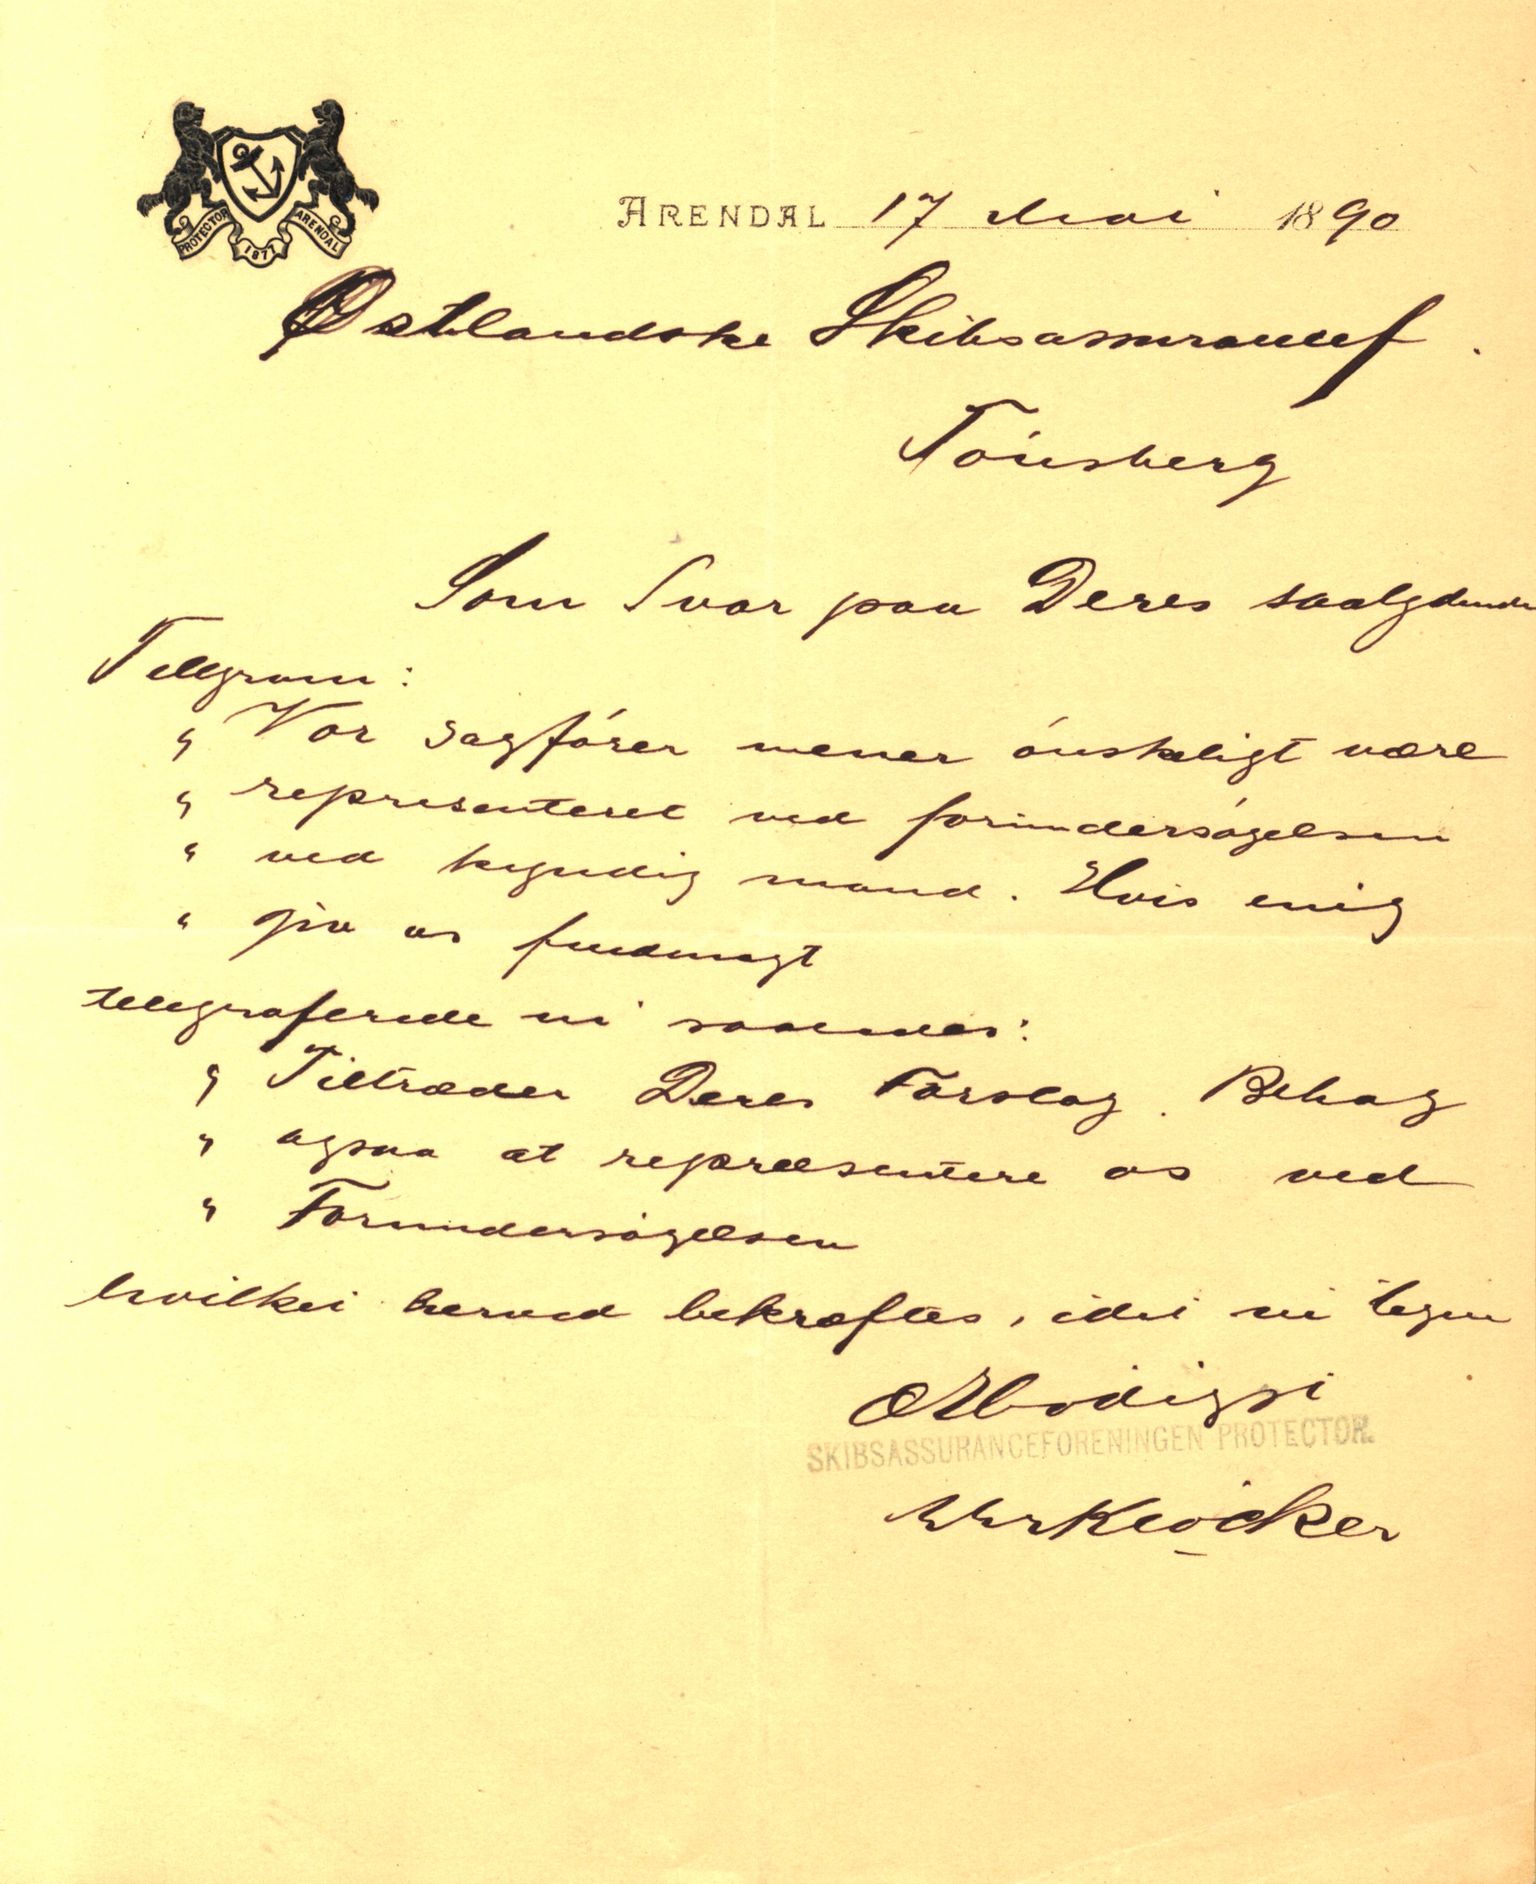 PROTECTOR 1877 ARENDAL
ARENDAL 17 Mai 1890
Østlandske Skibsassurancef.
Tönsberg
Som Svar paa Deres saalydende
Telegram:
„ Vor sagfører mener ónskeligt være
„ representeret ved forundersógelsen
„ ved kyndig mand. Hvis enig
„ giv os fuldmagt
telegraferede vi saaledes:
„ Tiltræder Deres Forslag. Behag
„ ogsaa at repræsentere os ved
„ Forundersógelsen
hvilket herved bekræftes, idet vi tegne
Ærbödigst
SKIBSASSURANCEFORENINGEN PROTECTOR.
Klöcker